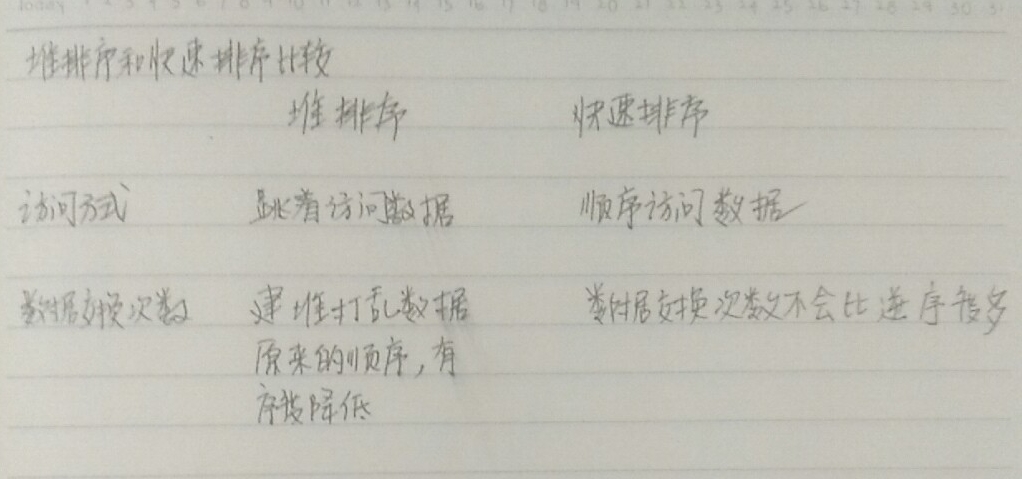 Today 1 2 3 4 5 6 7 8 9 10 11 12 13 14 15 16 17 18 19 20 21 22 23 24 25 26 27 28 29 30 31
堆排序和快速排序比较
堆排序 快速排序
访问方式 跳着访问数据 顺序访问数据
数据交换次数 建堆打乱数据 数据交换次数不会比逆序度多
原来的顺序,有
序度降低